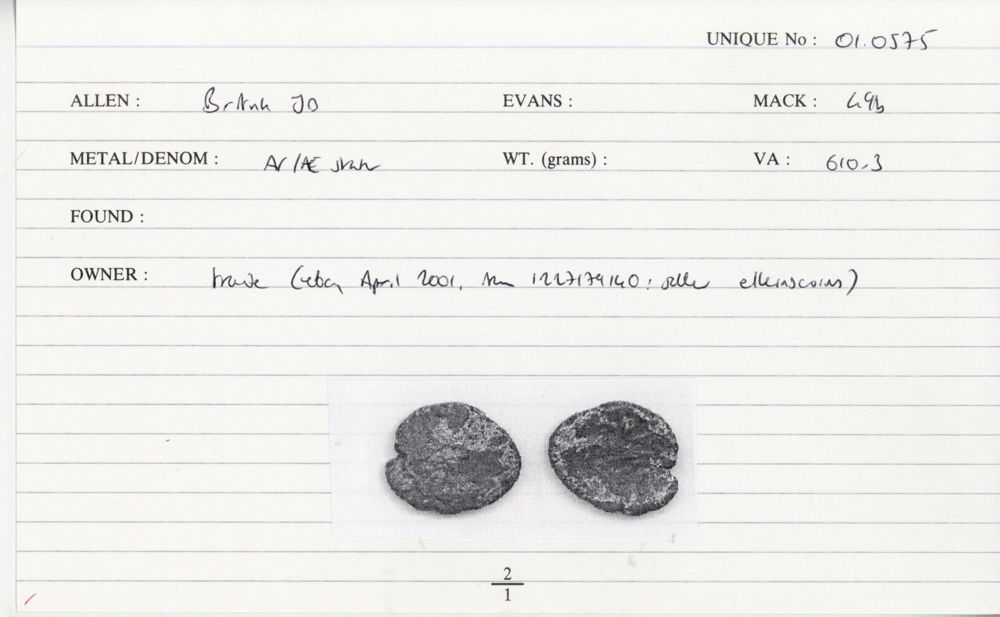 UNIQUE No : 01.0575
ALLEN : British JD EVANS : MACK : 49b
METAL/DENOM : AV/AE stater WT. (grams) : VA : 610.3
FOUND :
OWNER : trade (ebay April 2001, item 1227179140: seller elkinscoins)
2
1